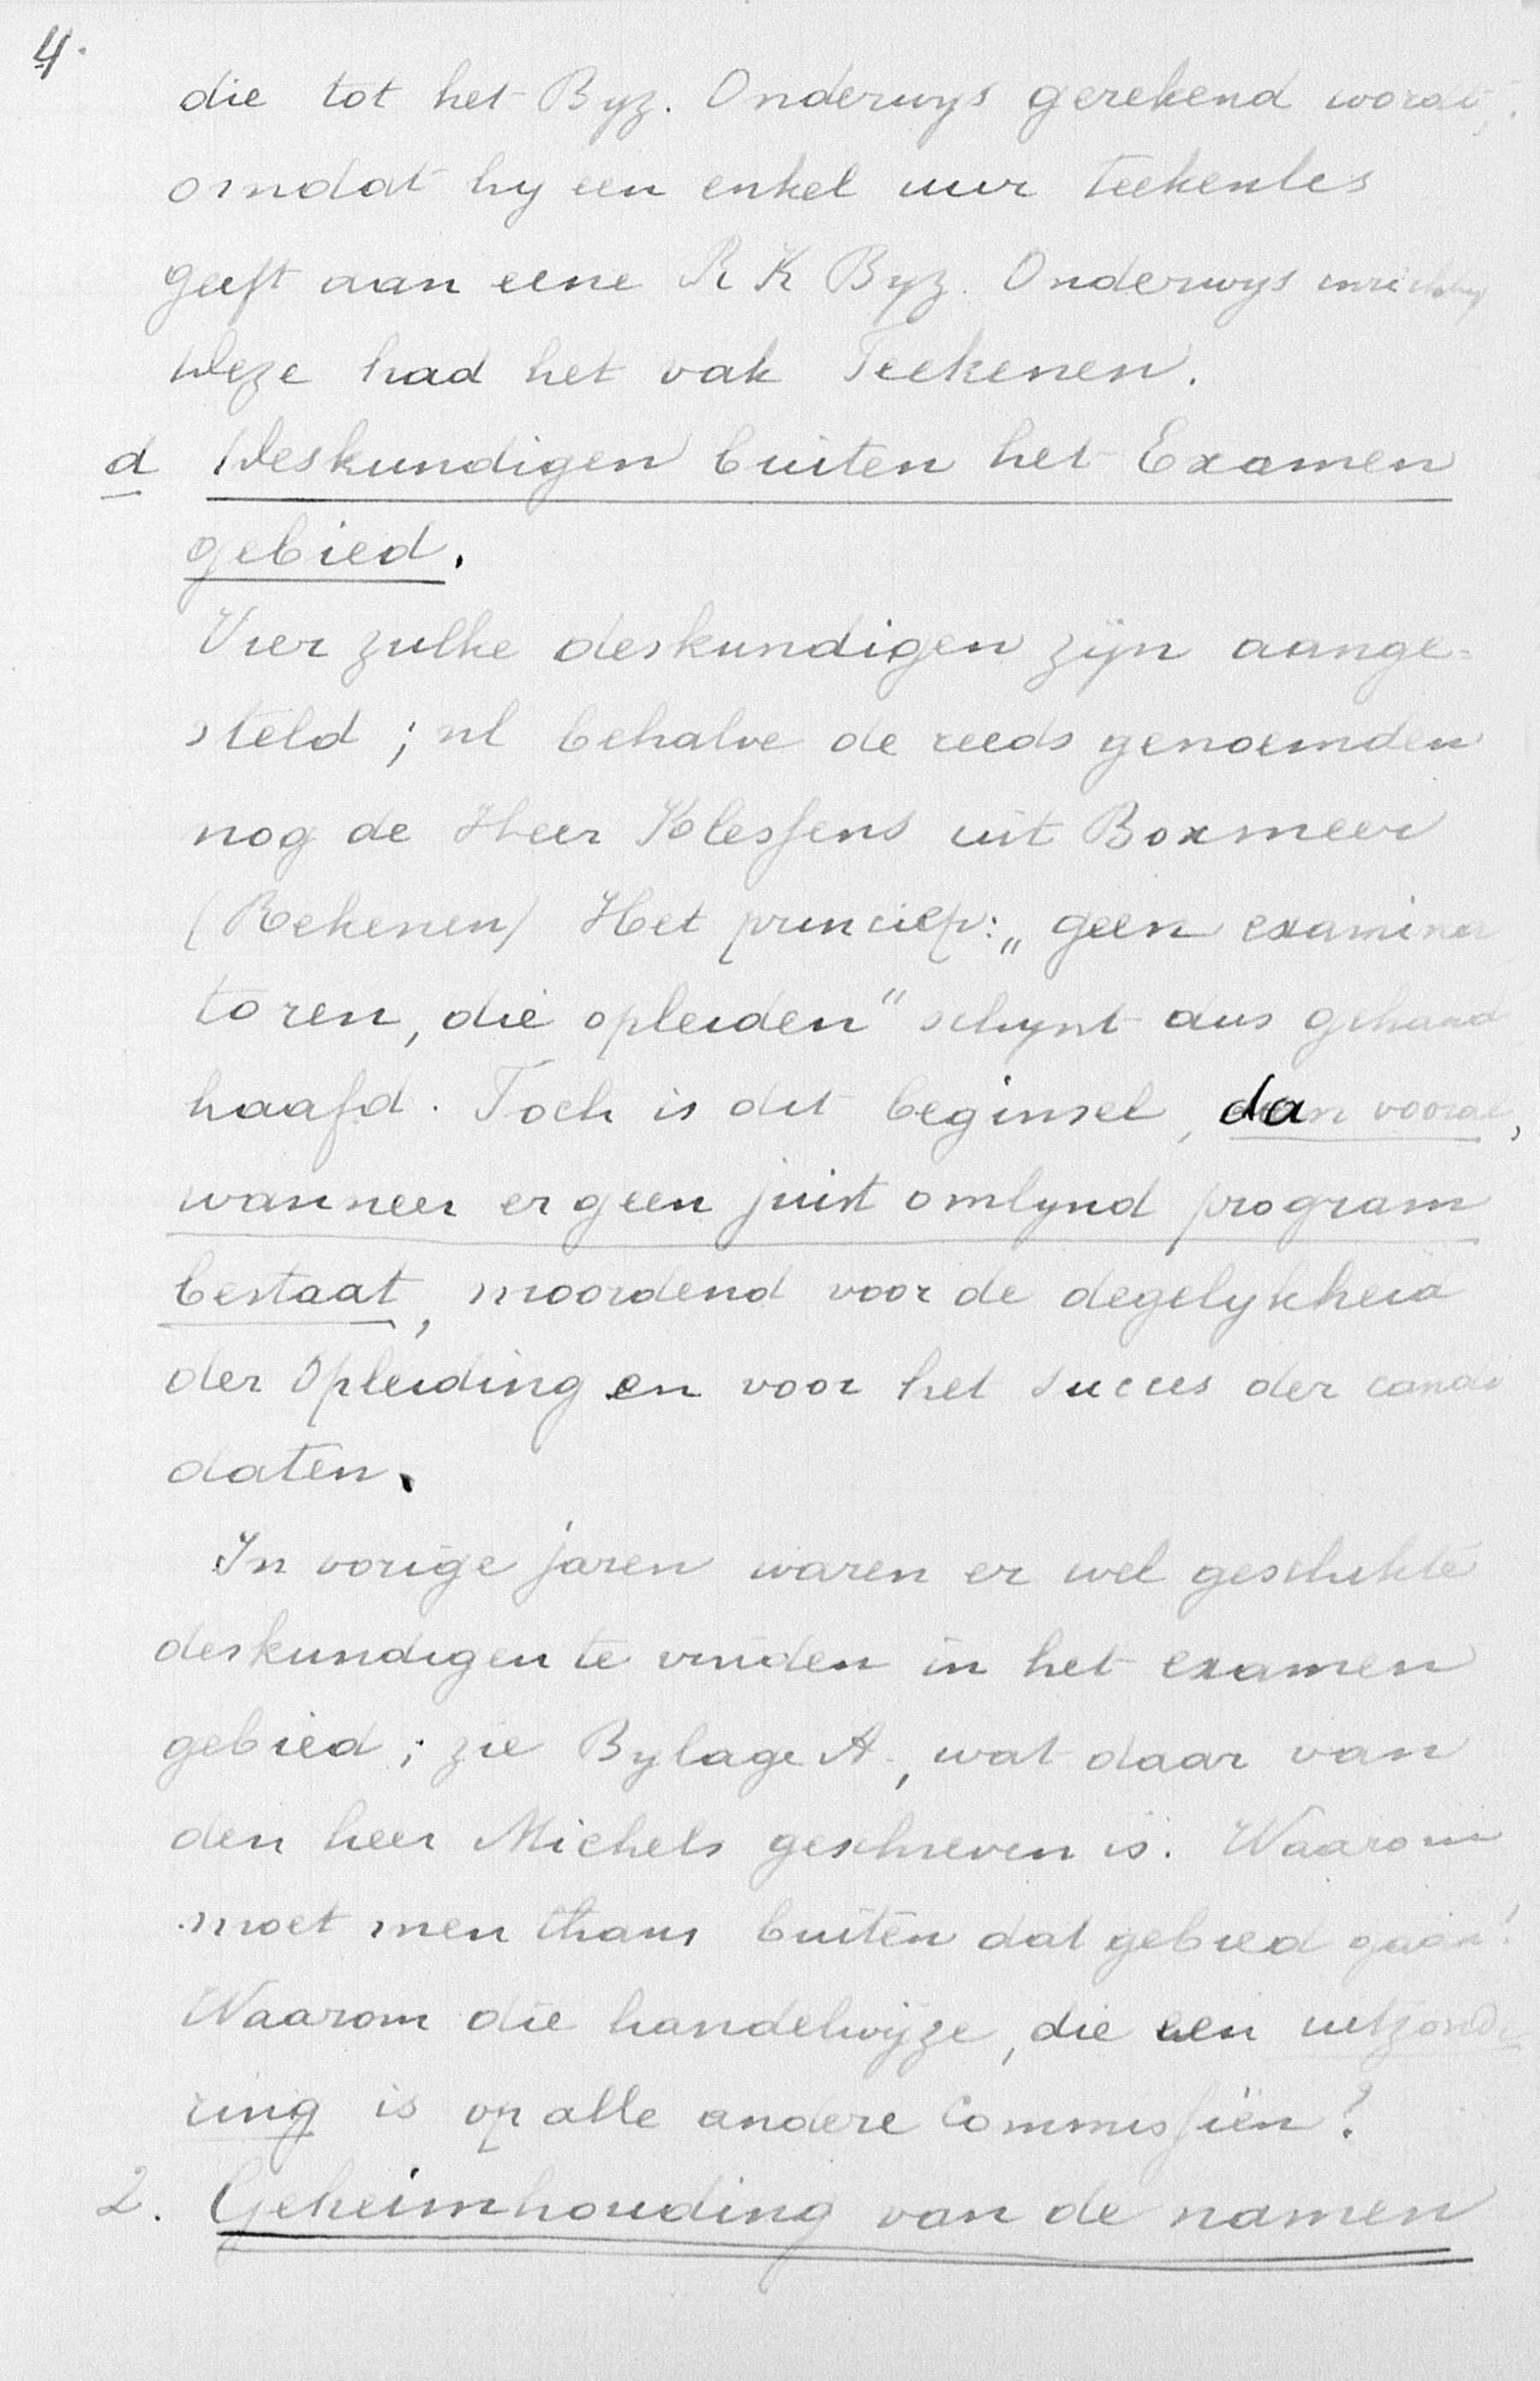 4.
die tot het Byz. Onderwys gerekend wordt,
omdat hy een enkel uur teekenles
geeft aan eene R K Byz. Onderwys inrichting
Deze had het vak Teekenen.
d Deskundigen buiten het Examen
gebied.
Vier zulke deskundigen zijn aange=
steld ; nl behalve de reeds genoemden
nog de Heer Klessens uit Boxmeer
(Rekenen) Het princiep: „ geen examina
toren, die opleiden" schynt dus gehand
haafd. Toch is dit beginsel, dan vooral,
wanneer er geen juist omlynd program
bestaat, moordend voor de degelykheid
der Opleiding en voor het succes der candi
daten.
In vorige jaren waren er wel geschikte
deskundigen te vinden in het examen
gebied ; zie Bylage A., wat daar van
den heer Michels geschreven is. Waarom
moet men thans buiten dat gebied gaan?
Waarom die handelwijze, die een uitzonde
ring is op alle andere Commissiën?
2. Geheimhouding van de namen